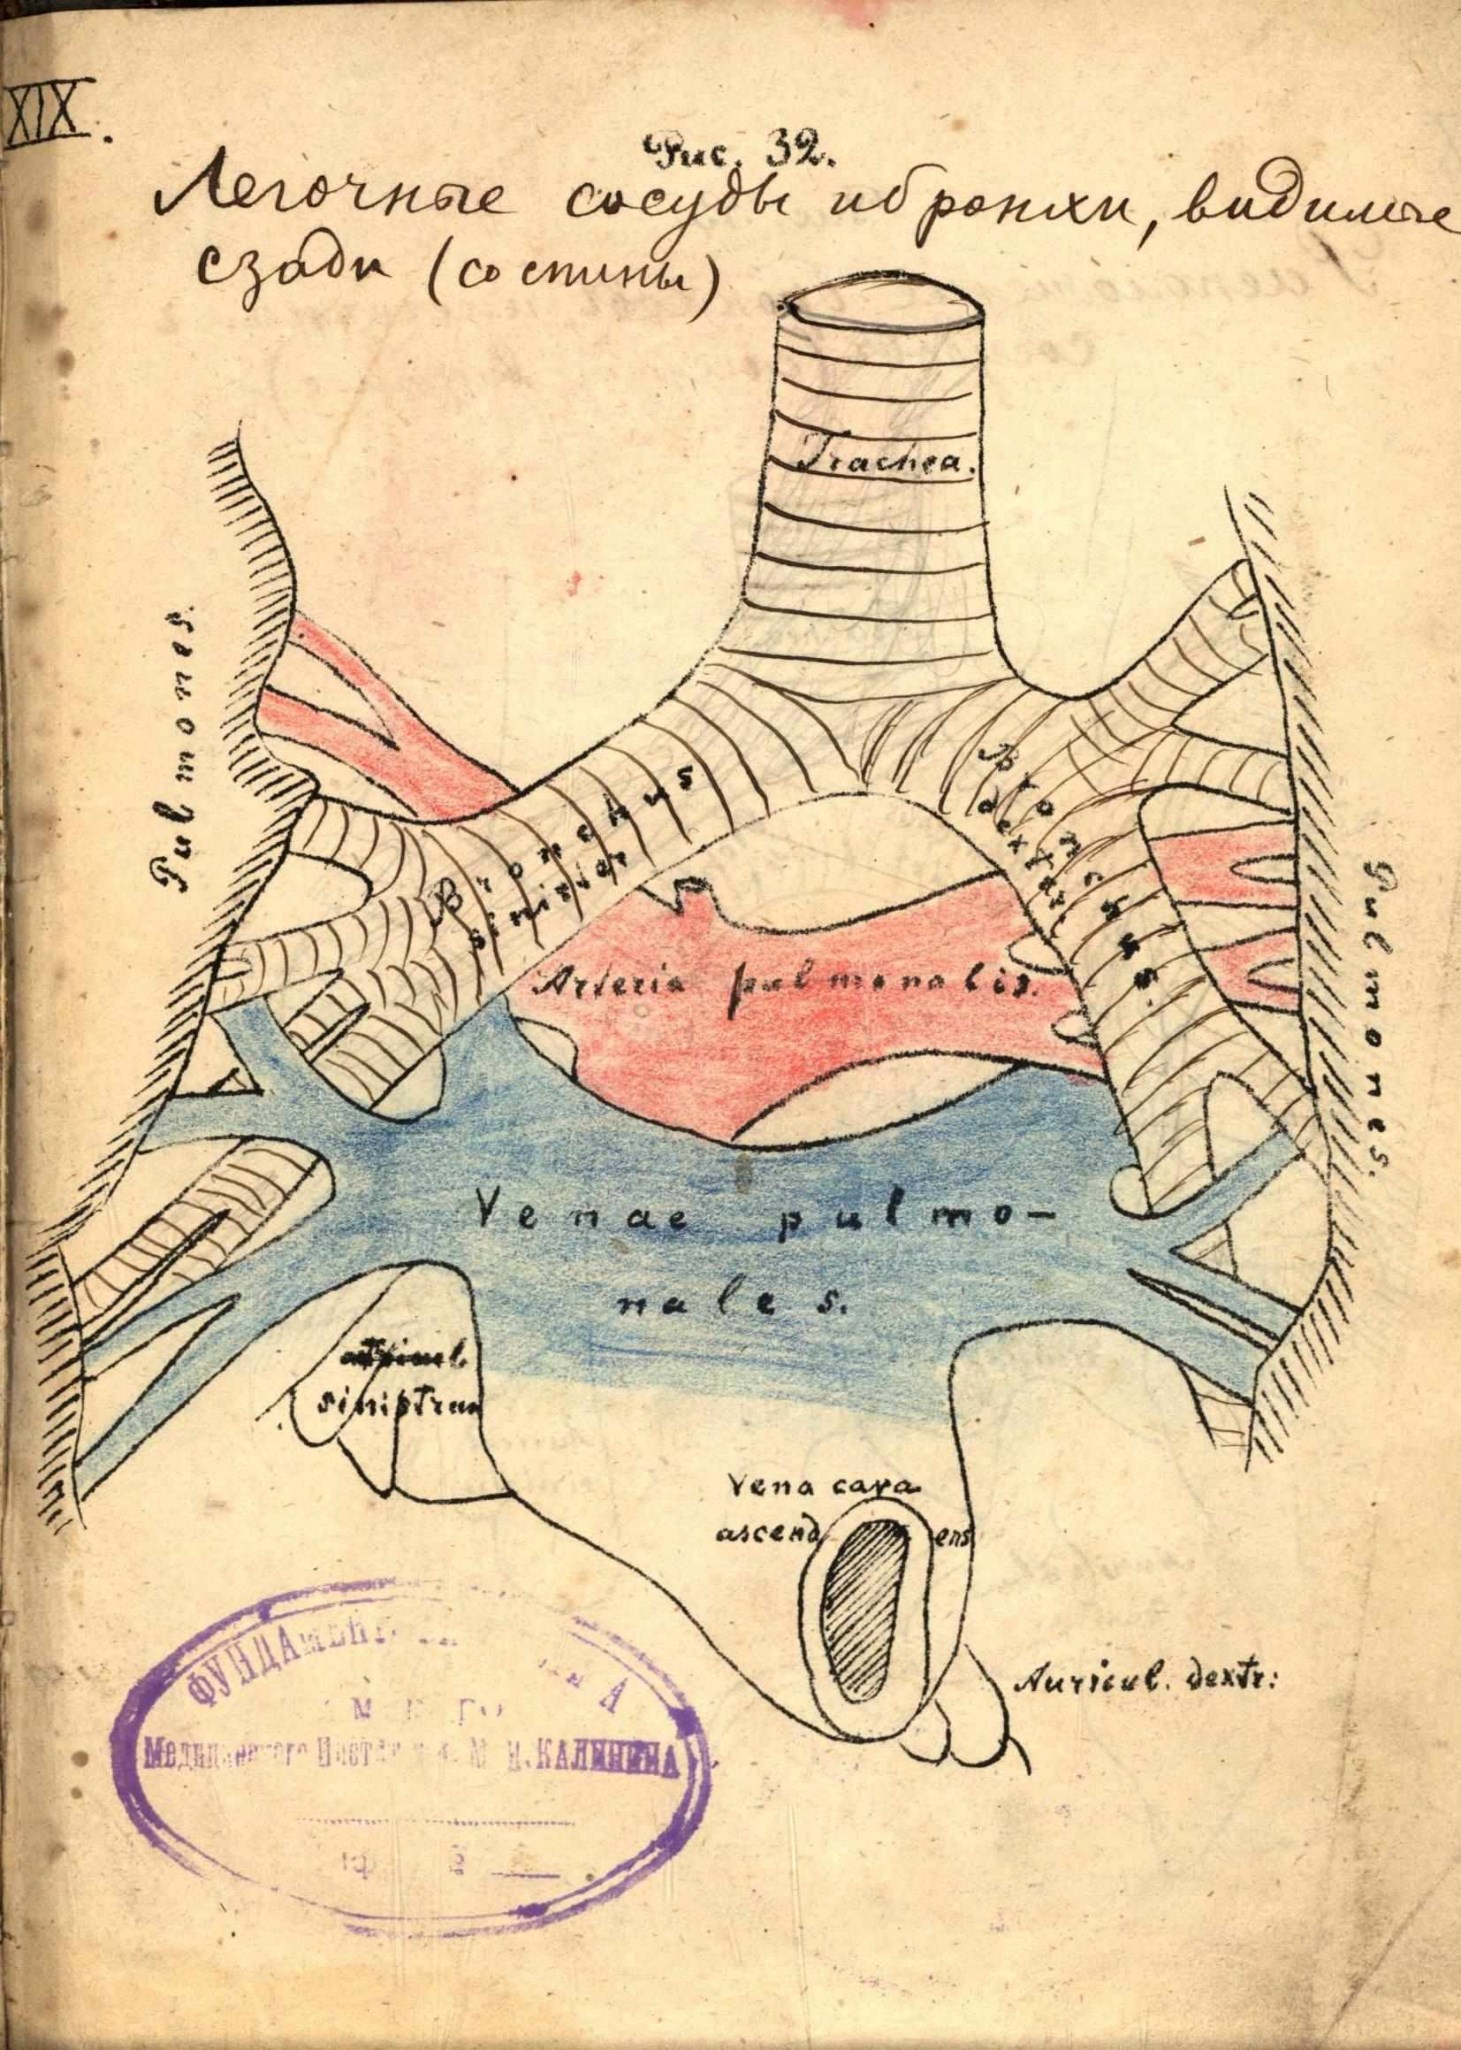 XIX.
Рис. 32.
Легочные сосуды и бронхи, видимые
сзади (со спины)
Trachea.
Pulmones.
Bronchus
sinister
Bronchus
dexter
Pulmones.
Arteria pulmonalis.
Venae pulmo-
nales.
sinistrum
Vena cava
ascendens
Auricul. dextr:
М. И. КАЛИНИНА